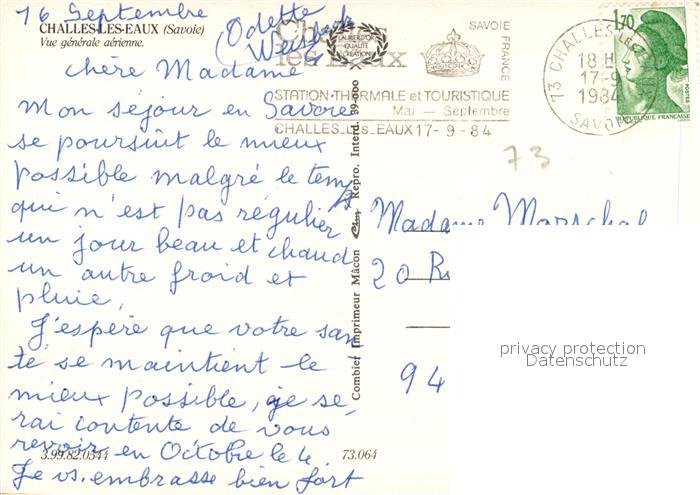 16 Septembre
CHALLES-LES-EAUX (Savoie)
Vue générale aérienne.
(Odette
chère Madame
Mon séjour en Savoie
se poursuit le mieux
possible malgré le temps
qui n'est pas régulier
un jour beau et chaud
un autre froid et
pluie,
J'espère que votre san
té se maintient le
mieux possible, je se,
rai contente de vous
revoir en Octobre le 4
Je vs. embrasse bien fort
3.99.82.0344
73.064
Combier Imprimeur Mâcon Cim Repro. Interd. 99-000
Challes
les Eaux
SAVOIE
FRANCE
STATION THERMALE et TOURISTIQUE
Mai — Septembre
CHALLES-LES-EAUX 17-9-84
73 CHALLES-LES-EAUX
18 H
17-9
1984
SAVOIE
1,70
POSTES
REPUBLIQUE FRANCAISE
73
Madame Marschal
20 R
94
privacy protection
Datenschutz